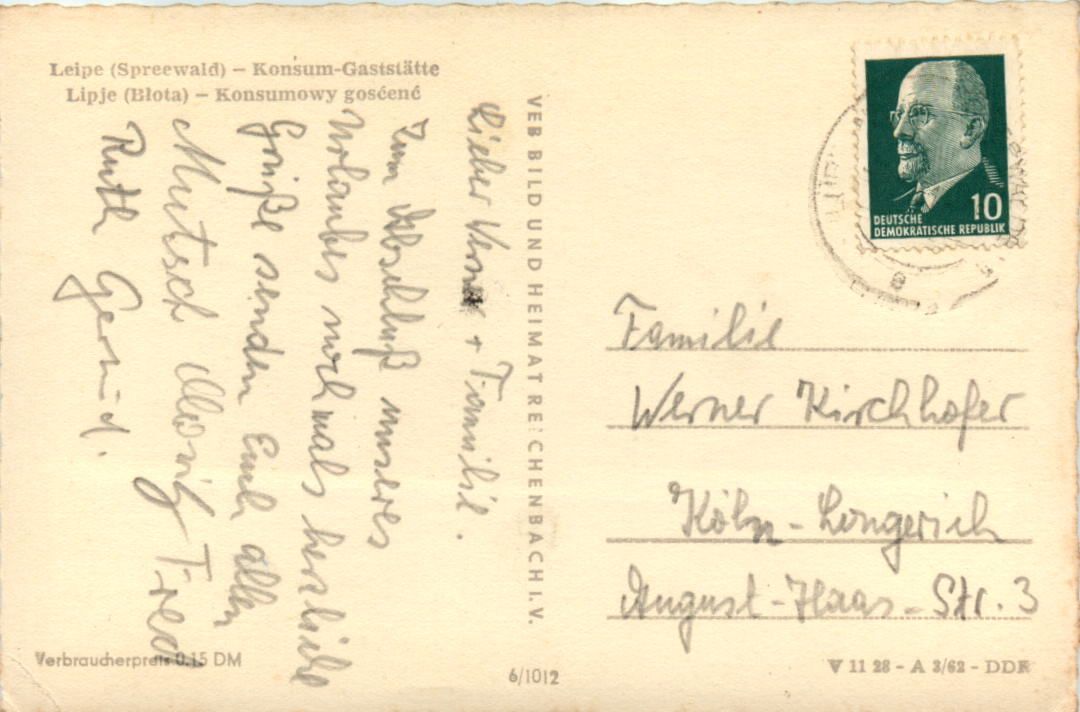 Leipe (Spreewald) – Konsum-Gaststätte
Lipje (Błota) – Konsumowy gosćenć
Lieber Werner + Familie.
Zum Abschluß unseres
Urlaubes nochmals herzliche
Grüße senden Euch allen
Mutsch Fred
Ruth Gerhild.
VEB BILD UND HEIMAT REICHENBACH I. V.
10
DEUTSCHE
DEMOKRATISCHE REPUBLIK
Familie
Werner Kirchhofer
Köln-Longerich
August-Haas-Str. 3
Verbraucherpreis 0.15 DM
6/1012
V 11 28 – A 3/62 – DDR